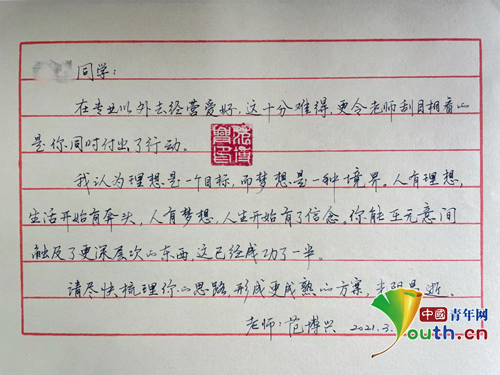 同学：
在专业以外去经营爱好，这十分难得，更令老师刮目相看的
是你同时付出了行动。
我认为理想是一个目标，而梦想是一种境界。人有理想，
生活开始有奔头，人有梦想，人生开始有了信念。你能在无意间
触及了更深层次的东西，这已经成功了一半。
请尽快梳理你的思路，形成更成熟的方案，光阴易逝。
老师：范博兴 2021.3.
中國青年网
Youth.cn